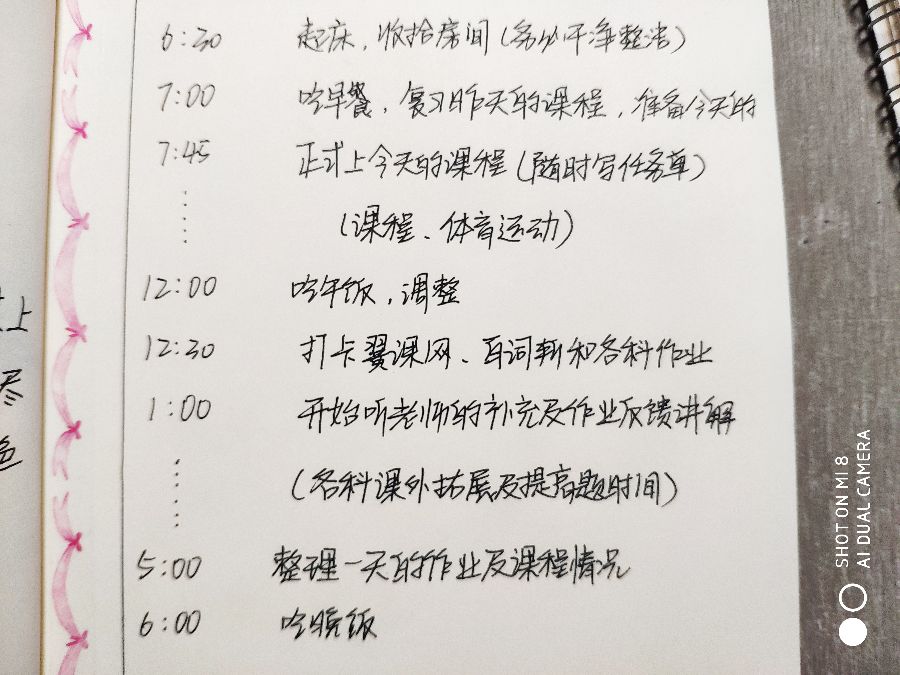 6:30 起床，收拾房间（务必干净整洁）
7:00 吃早餐，复习昨天的课程，准备今天的
7:45 正式上今天的课程（随时写任务单）
（课程、体育运动）
12:00 吃午饭，调整
12:30 打卡翼课网、百词斩和各科作业
1:00 开始听老师的补充及作业反馈讲解
（各科课外拓展及提高题时间）
5:00 整理一天的作业及课程情况
6:00 吃晚饭
上
尽
色
SHOT ON MI 8
AI DUAL CAMERA